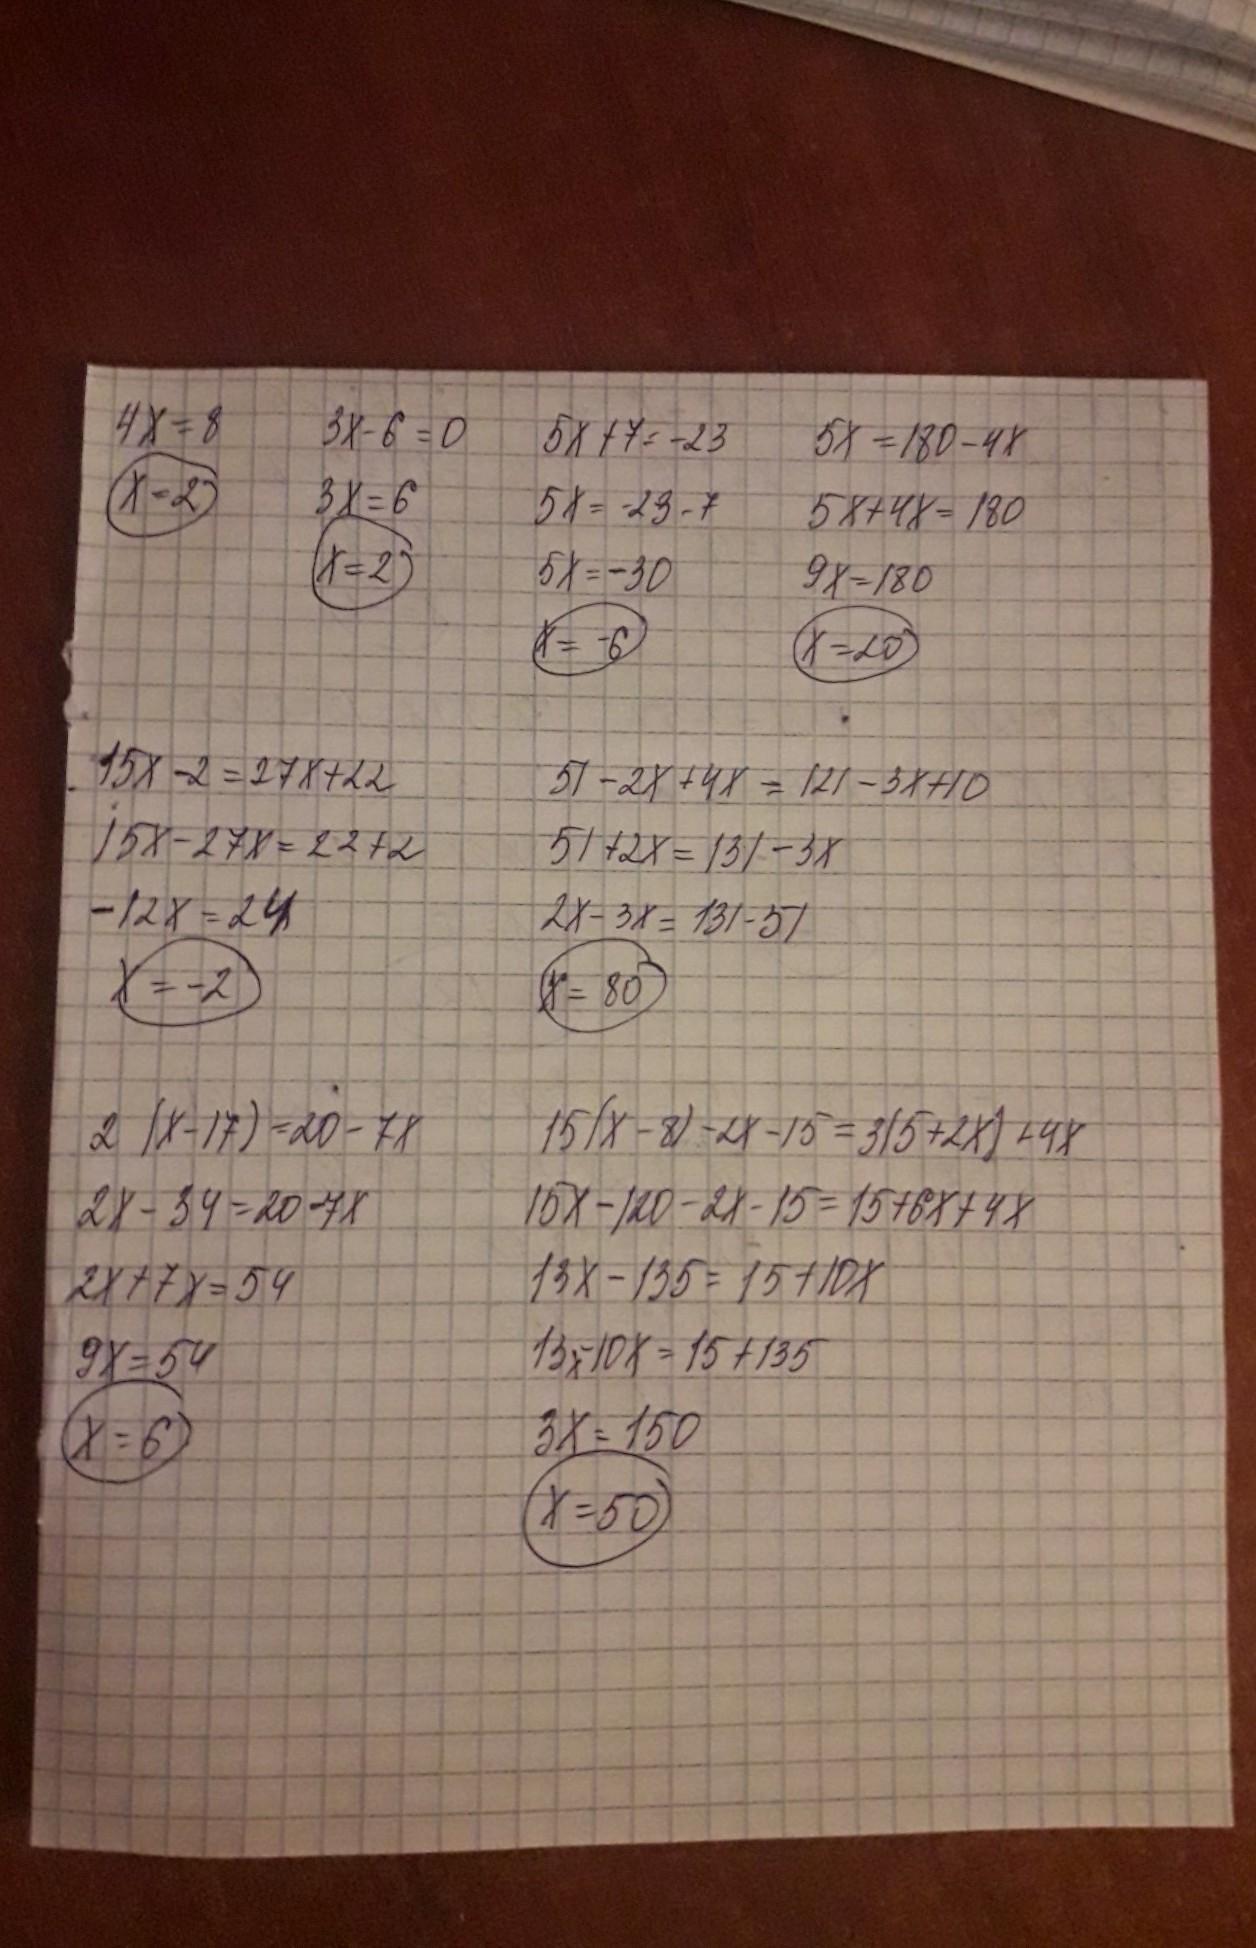 4x=8
x=2
3x-6=0
3x=6
x=2
5x+7=-23
5x=-23-7
5x=-30
x=-6
5x=180-4x
5x+4x=180
9x=180
x=20
15x-2=27x+22
15x-27x=22+2
-12x=24
x=-2
51-2x+4x=121-3x+10
51+2x=131-3x
2x-3x=131-51
x=80
2(x-17)=20-7x
2x-34=20-7x
2x+7x=54
9x=54
x=6
15(x-8)-2x-15=3(5+2x)+4x
15x-120-2x-15=15+6x+4x
13x-135=15+10x
13x-10x=15+135
3x=150
x=50